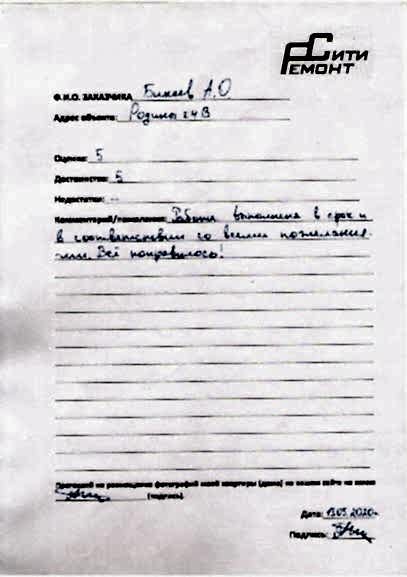 СИТИ
РЕМОНТ
Ф.И.О. ЗАКАЗЧИКА Бикеев А.О
Адрес объекта: Родины 24В
Оценка: 5
Достоинства: 5
Недостатки: --
Комментарий/пожелания: Работа выполнена в срок и
в соответствии со всеми пожелания-
ми. Всё понравилось!
на размещение фотографий моей квартиры (дома) на вашем сайте не имею
(подпись).
Дата: 13.05.2020г.
Подпись: